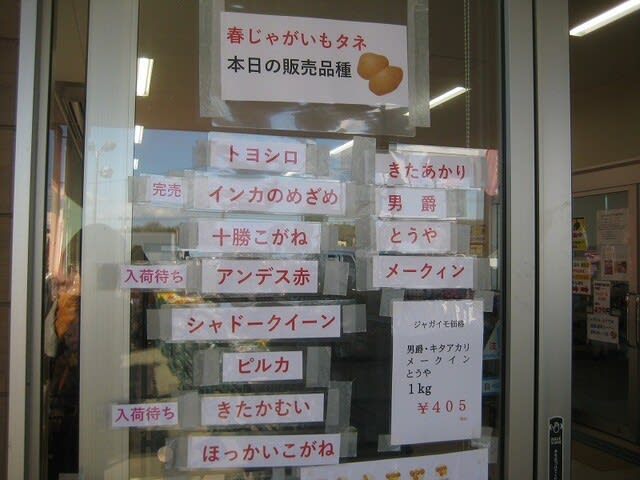 春じゃがいもタネ
本日の販売品種
トヨシロ
完売
インカのめざめ
十勝こがね
入荷待ち
アンデス赤
シャドークイーン
ピルカ
入荷待ち
きたかむい
ほっかいこがね
きたあかり
男爵
とうや
メークィン
ジャガイモ価格
男爵・キタアカリ
メークイン
とうや
1kg
￥405